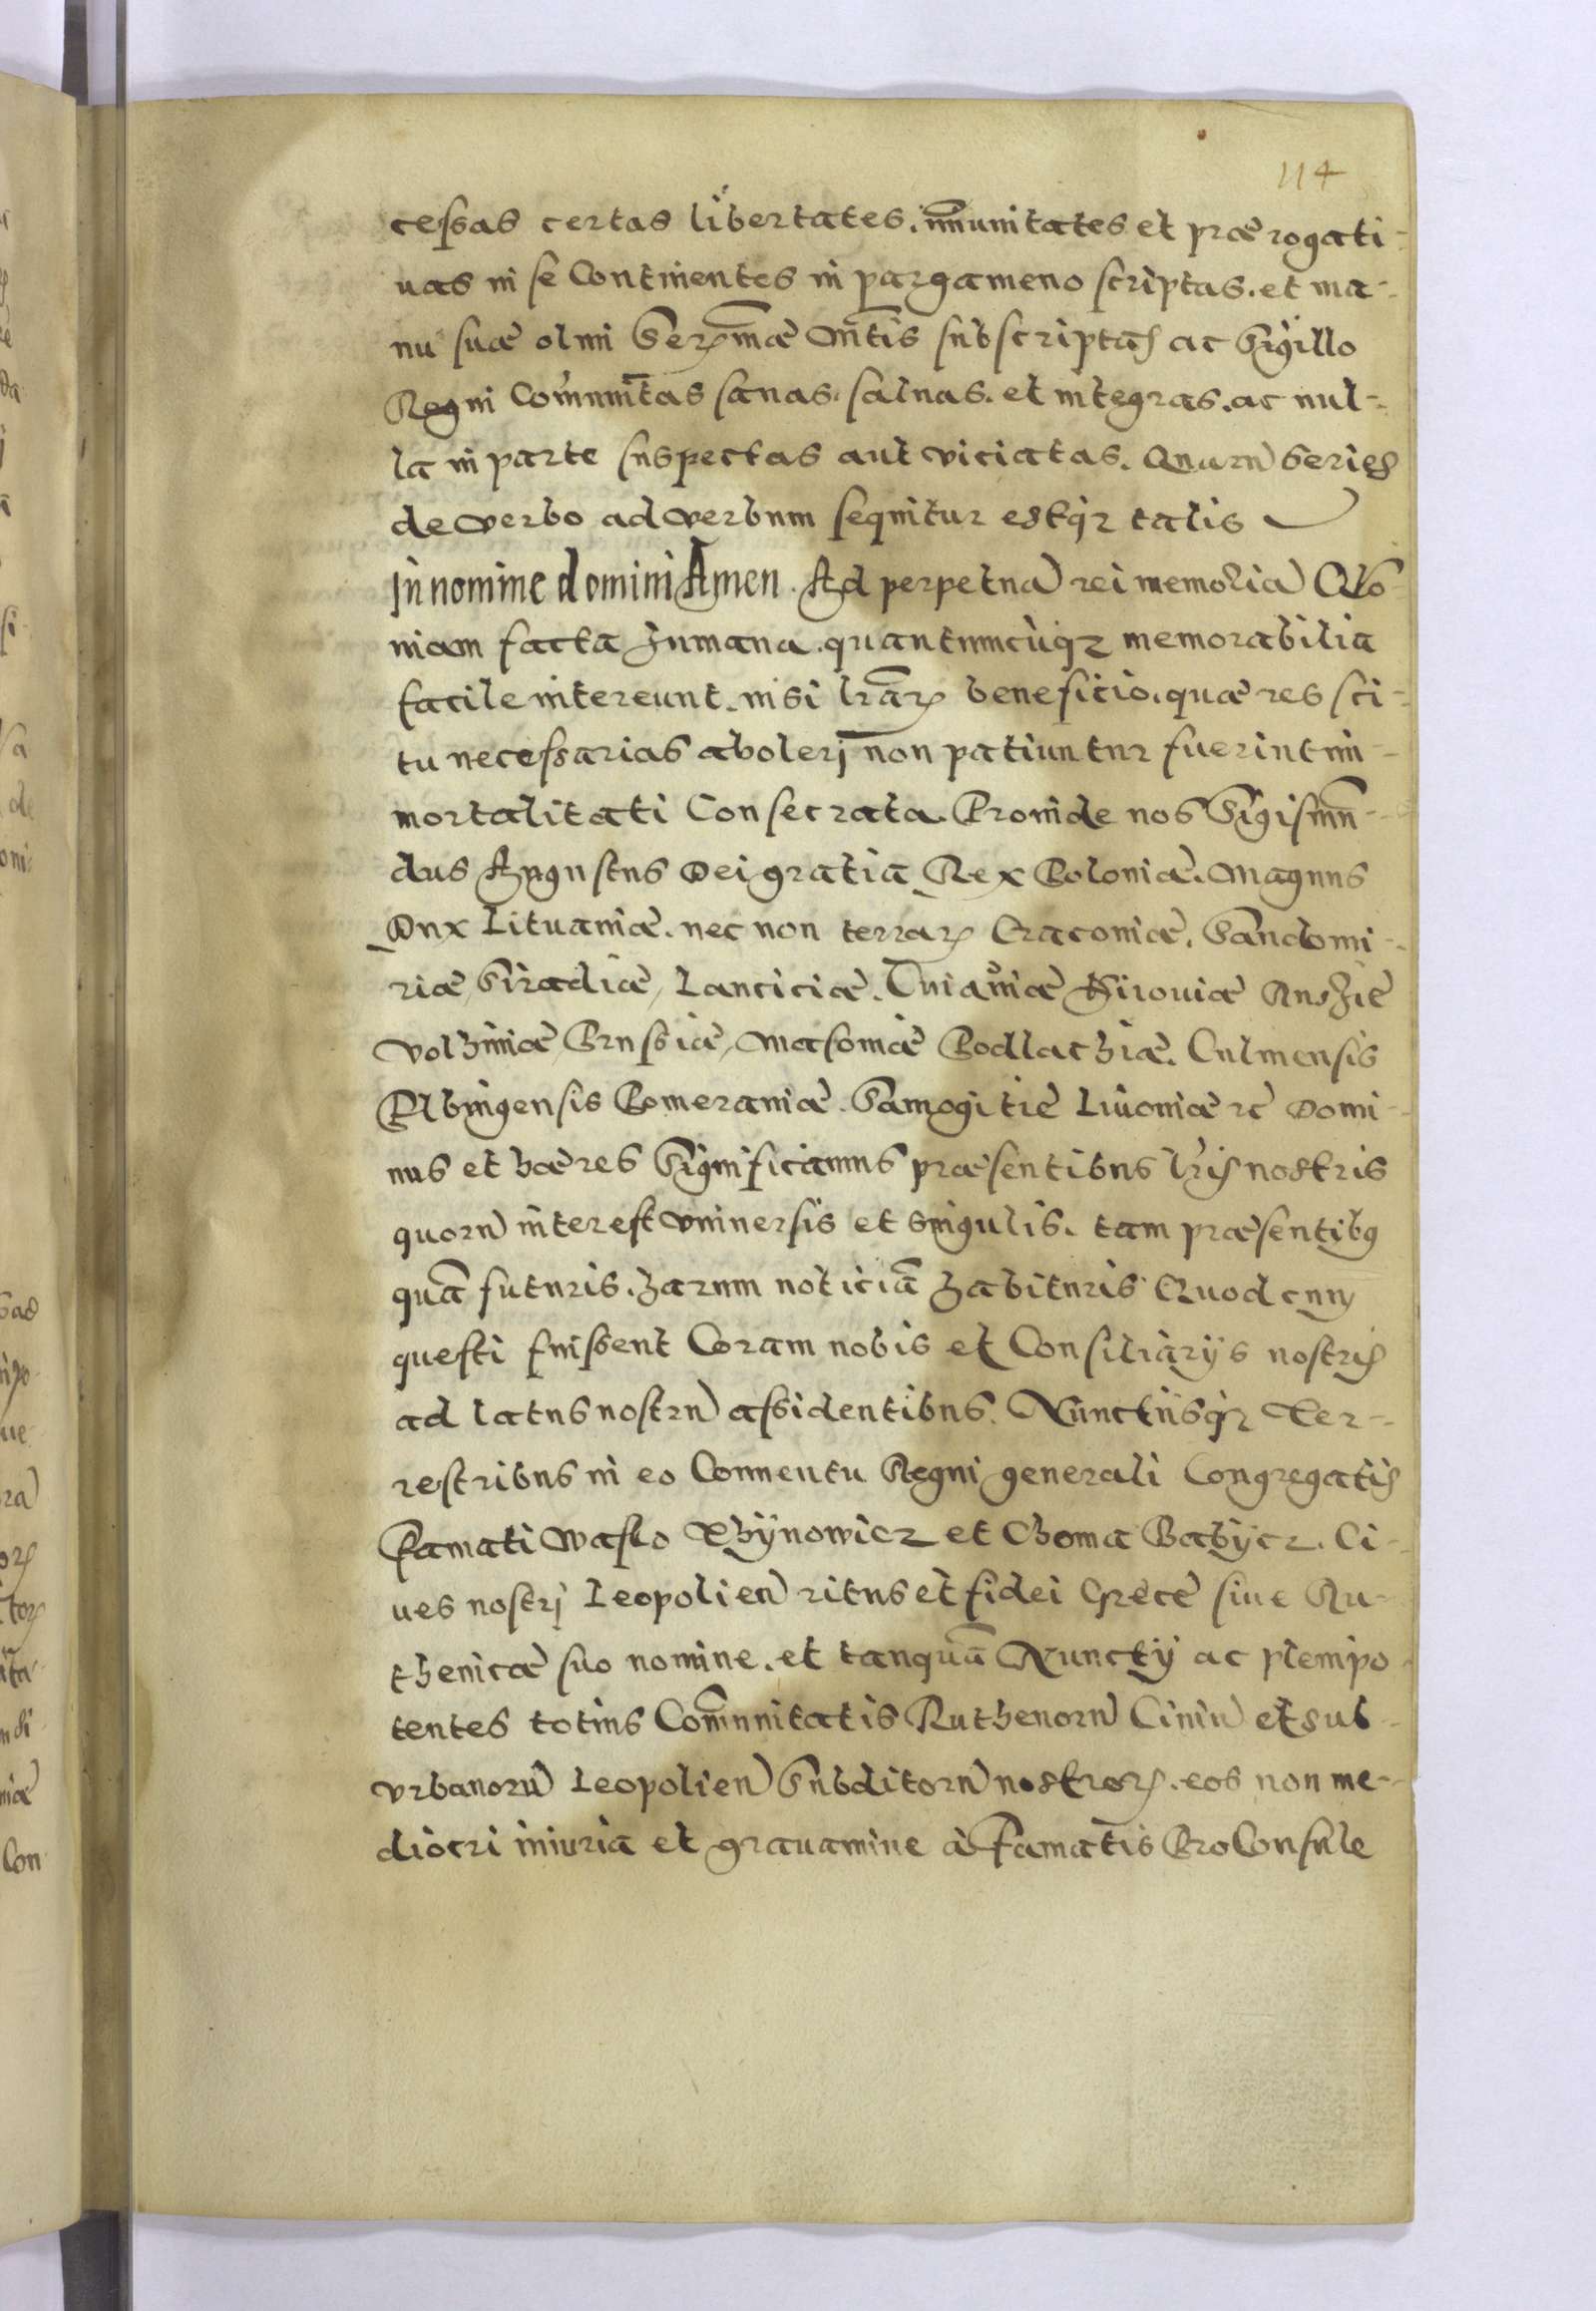 114
cessas certas libertates. im̃unitates et prærogati-
uas in se Continentes in pargameno scriptas. et ma-
nu suæ olim Serꝫmæ Mtis subscriptas ac Sigillo
Regni Com̃unitas sanas. saluas. et integras. ac nul-
la in parte suspectas aut viciatas. Quarũ Series
de verbo ad verbum sequitur estqꝫ talis
In nomine domini Amen. Ad perpetuã rei memoriã Quo-
niam facta humana. quantumcũqꝫ memorabilia
facile intereunt. nisi lrãꝝ beneficio. quæ res sci-
tu necessarias abolerj non patiuntur fuerint im-
mortalitati Consecrata. Proinde nos Sigismũ-
dus Augustus Dei gratia Rex Poloniæ. Magnus
Dux Lituaniæ. nec non terraꝝ Cracouiæ. Sandomi-
riæ, Siradiæ, Lanciciæ. Cuiauiæ Kiiouiæ Russie
Volhiniæ Prussiæ, Masouiæ Podlachiæ. Culmensis
Elbingensis Pomeraniæ. Samogitiæ Liuoniæ ꝛc Domi-
nus et hæres Significamus præsentibus lris nostris
quorũ interest vniuersis et singulis. tam præsentibꝫ
quã futuris. harum noticiã habituris Quod cum
questi fuissent Coram nobis et Consiliarijs nostris
ad latus nostrũ assidentibus. Nunctiisqꝫ Ter-
restribus in eo Conuentu Regni generali Congregatis
Famati Wasko Thÿnowicz et Choma Babÿcz. Ci-
ues nostrj Leopolieñ ritus et fidei Grece siue Ru-
thenicæ suo nomine. et tanquã Nunctij ac plenipo-
tentes totius Com̃unitatis Ruthenorũ Ciuiũ et sub-
vrbanorũ Leopolieñ Subditorũ nostroꝝ. eos non me-
diocri iniuria et grauamine à Famatis ProConsule